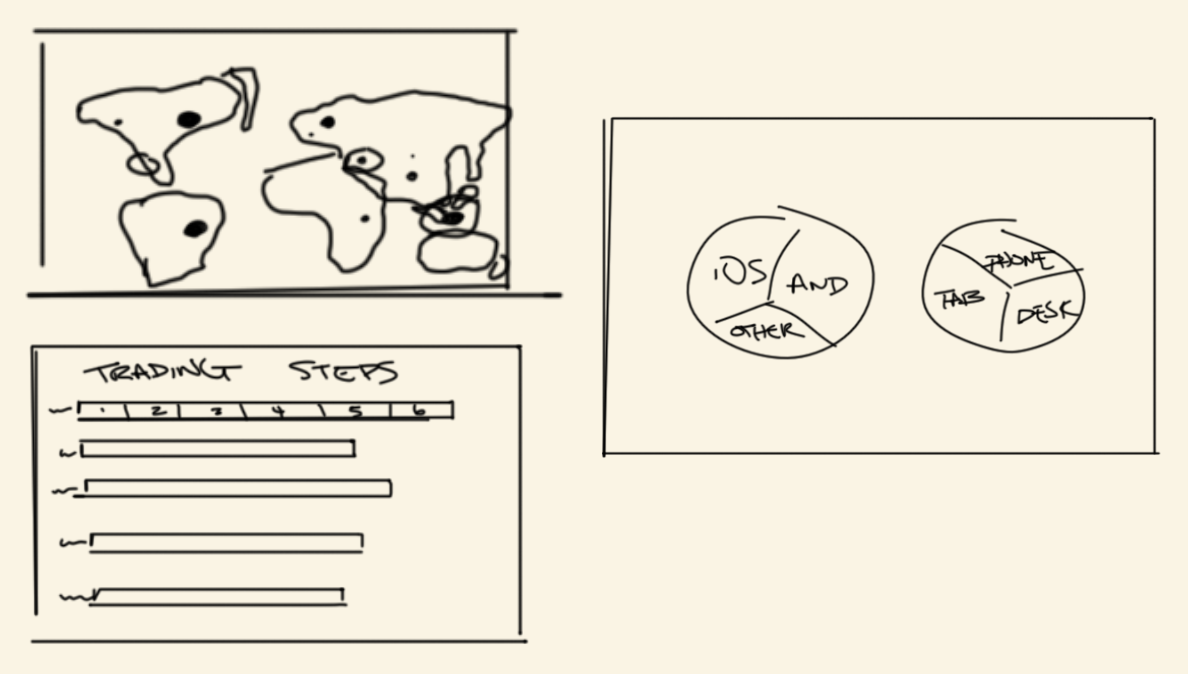 TRADING STEPS
1 2 3 4 5 6
iOS AND
OTHER
PHONE
TAB DESK